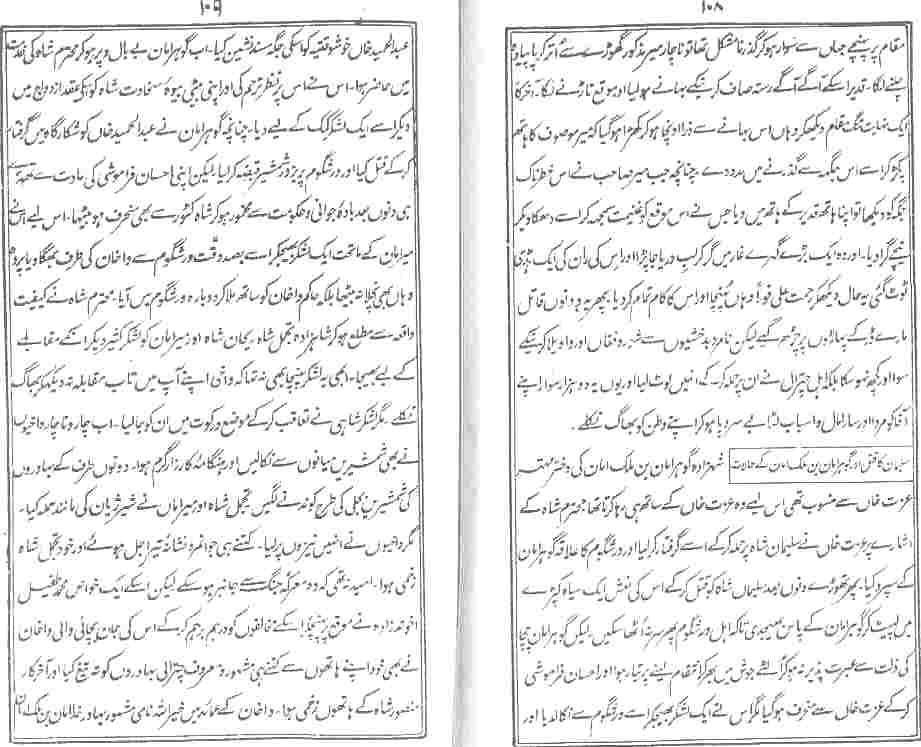 ۱۰۸
مقام پر پہنچے جہاں سے سوار ہوکر گذرنا مشکل تھا تو ناچار میر مذکور گھوڑے سے اتر کر پا پیادہ
چلنے لگا۔ قدیر اسکے آگے آگے رستہ صاف کرنیکے بہانے ہولیا اور موقع تاڑنے لگا۔ آخر کار
ایک نہایت تنگ مقام دیکھ کر وہاں اس بہانے سے ذرا اونچا ہوکر کھڑا ہوگیا کہ میر موصوف کا ہاتھ
پکڑ کر اسے اس جگہ سے گذرنے میں مدد دے۔ چنانچہ جب میر صاحب نے اس خطرناک
جگہ کو دیکھا تو اپنا ہاتھ قدیر کے ہاتھ میں دیا جس نے اس موقع کو غنیمت سمجھ کر اسے دھکا دیکر
نیچے گرا دیا۔ اور وہ ایک بڑے گہرے غار میں گر کر لب دریا جا پڑا اور اس کی ران کی ایک ہڈی
ٹوٹ گئی یہ حال دیکھکر رحمت علی فوراً وہاں پہنچا اور اس کا کام تمام کر دیا۔ پھر یہ دونوں قاتل
مارے ڈر کے پہاڑوں پر چڑھ گئے لیکن نامرد بدخشیوں سے شور و فغاں اور واویلا کرنیکے
سوا اور کچھ نہو سکا بلکہ اہل چترال نے ان پر حملہ کر کے انہیں لوٹ لیا اور یوں یہ دو ہزار سوار اپنے
آقا کو مروا اور سارا مال و اسباب لٹا بے سر و پا ہوکر اپنے وطن کو بھاگ نکلے۔
سلیمان کا قتل اور گوہر امان بن ملک امان کے حالات
شہزادہ گوہر امان بن ملک امان کی دختر مہتر
عزت خاں سے منسوب تھی اس لیے وہ عزت خاں کے ساتھ ہی رہا کرتا تھا محترم شاہ کے
اشارے پر عزت خاں نے سلیمان شاہ پر حملہ کر کے اسے گرفتار کر لیا اور ورشگوم کا علاقہ گوہر امان
کے سپرد کیا۔ پھر تھوڑے دنوں بعد سلیمان شاہ کو قتل کر کے اس کی نعش ایک سیاہ کپڑے
میں لپیٹ کر گوہر امان کے پاس بھیجدی تاکہ اہل ورشگوم پھر سر نہ اٹھا سکیں۔ لیکن گوہر امان چچا
کی ذلت سے عبرت پذیر نہ ہوا الٹے جوش میں بھر کر انتقام لینے پر تیار ہوا اور احسان فراموشی
کر کے عزت خاں سے منحرف ہوگیا مگر اس نے ایک لشکر بھیجکر اسے ورشگوم سے نکال دیا اور
۱۰۹
عبدالحمید خاں خوشوقتیہ کو اسکی جگہ مسند نشین کیا۔ اب گوہر امان بے بال و پر ہو کر محترم شاہ کی خدمت
میں حاضر ہوا۔ اس نے اس پر نظر ترحم کی اور اپنی بیٹی بیوہ سخاوت شاہ کو اسکی عقد ازدواج میں
دیکر اسے ایک لشکر کمک کے لیے دیا۔ چنانچہ گوہر امان نے عبدالحمید خاں کو شکار گاہ میں گرفتار
کر کے قتل کیا اور ورشگوم پر بزور شمشیر قبضہ کر لیا لیکن اپنی احسان فراموشی کی عادت سے
ہی دنوں بعد بادۂ جوانی و حکومت سے مخمور ہوکر شاہ کٹور سے بھی منحرف ہو بیٹھا۔ اس لیے اسنے
میر امان کے ماتحت ایک لشکر بھیجکر اسے بصد دقت ورشگوم سے واخان کی طرف بھگا دیا پر وہ
وہاں بھی نچلا نہ بیٹھا بلکہ حاکم واخان کو ساتھ ملا کر دوبارہ ورشگوم میں آیا۔ محترم شاہ نے کیفیت
واقعہ سے مطلع ہو کر شاہزادہ تجمل شاہ ریحان شاہ اور میر امان کو لشکر کثیر دیکر انکے مقابلے
کے لیے بھیجا۔ ابھی یہ لشکر پہنچا بھی نہ تھا کہ واخی اپنے آپ میں تاب مقابلہ نہ دیکھکر بھاگ
نکلے۔ مگر لشکر شاہی نے تعاقب کر کے موضع ورکوت میں ان کو جالیا۔ اب چار و ناچار واخیوں
نے بھی شمشیریں میانوں سے نکالیں اور ہنگامہ کارزار گرم ہوا۔ دونوں طرف کے بہادروں
کی شمشیریں بجلی کی طرح کوندنے لگیں۔ تجمل شاہ اور میر امان نے شیر ژیاں کی مانند حملہ کیا۔
مگر واخیوں نے انہیں نیزوں پر لیا۔ کتنے ہی جوانمرد نشانہ تیر اجل ہوئے اور خود تجمل شاہ
زخمی ہوا۔ امید نہ تھی کہ وہ معرکہ جنگ سے جانبر ہو سکے لیکن اسکے ایک خواص محمد طفیل
اخوند زادہ نے موقع پر پہنچکر اسکے مخالفوں کو درہم برہم کر کے اس کی جان بچائی والی واخان
نے بھی خود اپنے ہاتھوں سے کتنے ہی مشہور و معروف چترالی بہادروں کو تہ تیغ کیا اور آخر کار
منصور شاہ کے ہاتھوں زخمی ہوا۔ واخان کے عمائد میں خیر اللہ نامی مشہور بہادر غلامان بن